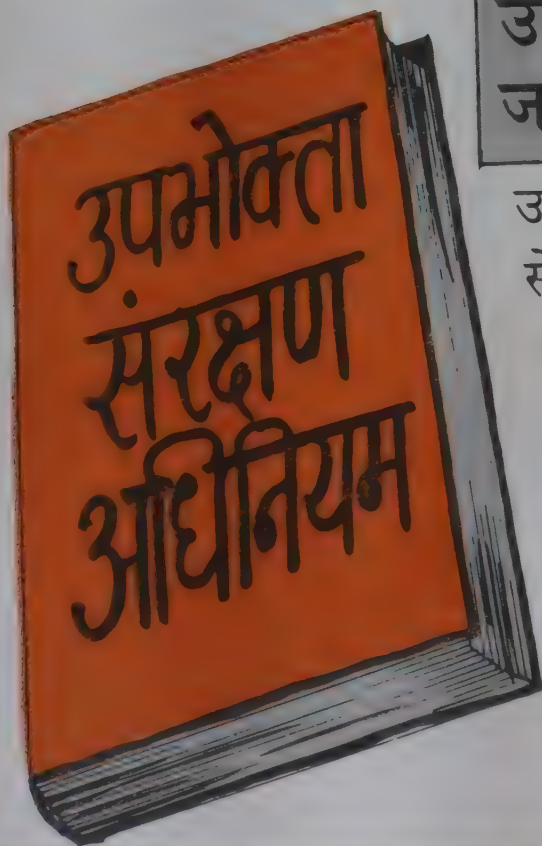 उपभोक्ता
संरक्षण
अधिनियम